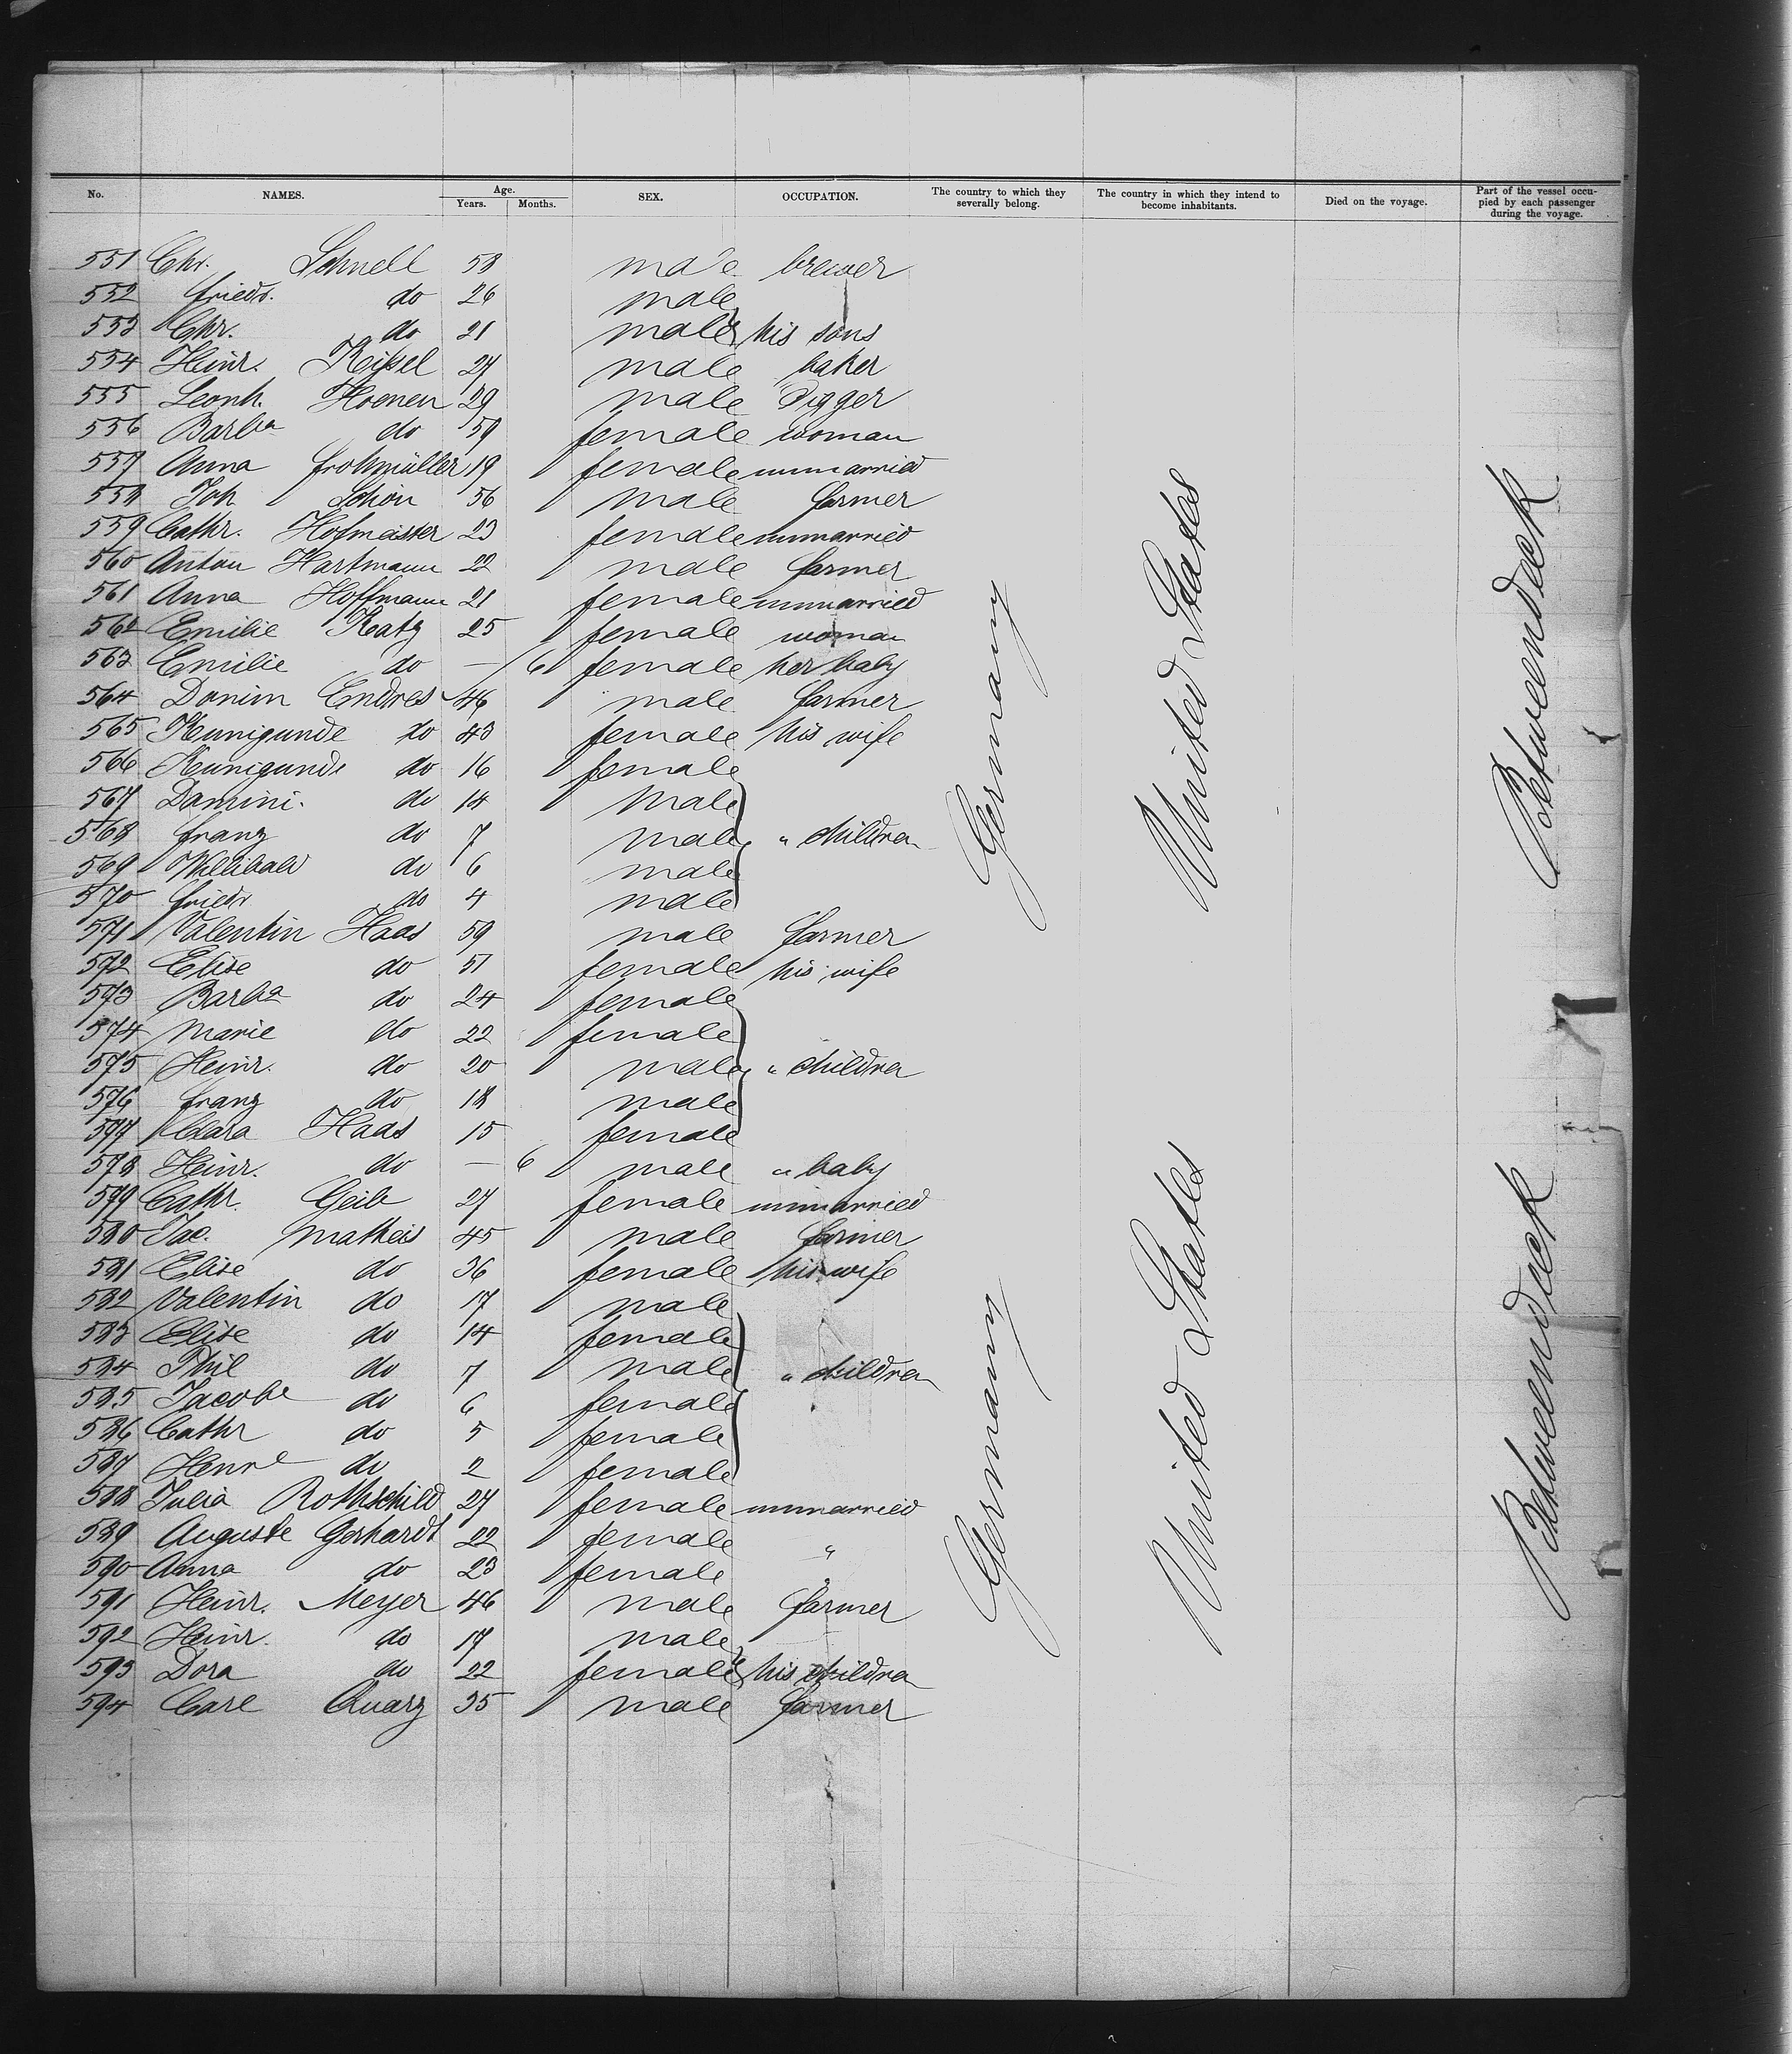 No. NAMES. Age. Years. Months. SEX. OCCUPATION. The country to which they severally belong. The country in which they intend to become inhabitants. Died on the voyage. Part of the vessel occupied by each passenger during the voyage.
551 Chr. Schnell 58 male brewer
552 Friedr. do 26 male
553 Chr. do 21 male his sons
554 Heinr. Keißel 27 male baker
555 Leonh. Hoenen 29 male Digger
556 Barba do 59 female woman
557 Anna Frohmüller 19 female unmarried
558 Joh Schön 56 male farmer
559 Cathr. Hofmeister 23 female unmarried
560 Anton Hartmann 22 male farmer
561 Anna Hoffmann 21 female unmarried
562 Emilie Katz 25 female woman
563 Emilie do — 6 female her baby
564 Donim Endres 46 male farmer
565 Kunigunde do 43 female his wife
566 Kunigunde do 16 female
567 Damini. do 14 male
568 Franz do 7 male " children
569 Willibald do 6 male
570 Friedr do 4 male
571 Valentin Haas 59 male farmer
572 Elise do 51 female his wife
573 Barba do 24 female
574 Marie do 22 female
575 Heinr. do 20 male " children
576 Franz do 18 male
577 Clara Haas 15 female
578 Heinr. do — 6 male " baby
579 Cathr. Geib 27 female unmarried
580 Jac. Matheis 45 male farmer
581 Elise do 36 female his wife
582 Valentin do 17 male
583 Elise do 14 female
584 Phil do 7 male " children
585 Jacobe do 6 female
586 Cathr do 5 female
587 Henre do 2 female
588 Julia Rothschild 27 female unmarried
589 Auguste Gerhardt 22 female "
590 Anna do 23 female "
591 Heinr. Meyer 46 male farmer
592 Heinr. do 17 male
593 Dora do 22 female his children
594 Carl Quarz 35 male farmer
Germany
United States
Betweendeck
Germany
United States
Betweendeck